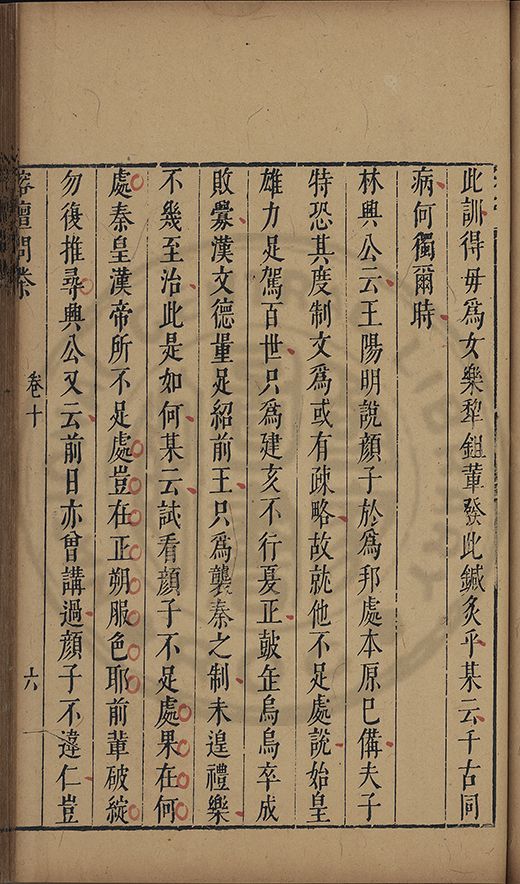 此訓得毋為女樂犁鉏輩發此鍼灸乎某云千古同
病何獨爾時
林興公云王陽明說顏子於為邦處本原已備夫子
特恐其度制文為或有疎略故就他不足處說始皇
雄力足駕百世只為建亥不行夏正皷缶烏烏卒成
敗釁漢文德量足紹前王只為襲秦之制未遑禮樂
不幾至治此是如何某云試看顏子不足處果在何
處秦皇漢帝所不足處豈在正朔服色耶前輩破綻
勿復推尋興公又云前日亦曾講過顏子不違仁豈
榕壇問業
卷十
六